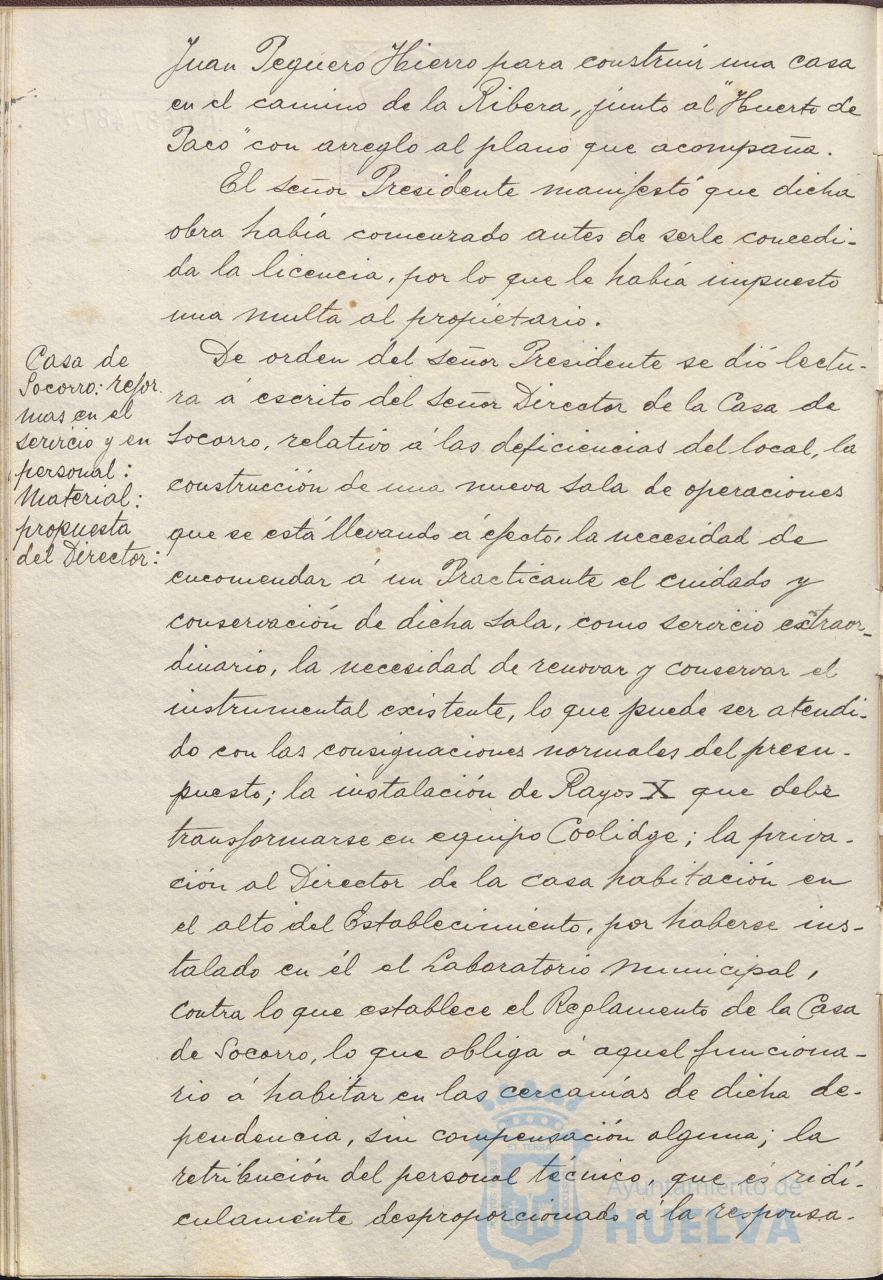 Juan Pegüero Hierro para construir una casa
en el camino de la Ribera, junto al "Huerto de
Paco" con arreglo al plano que acompaña.
El señor Presidente manifestó que dicha
obra había comenzado antes de serle concedi-
da la licencia, por lo que le había impuesto
una multa al propietario.
Casa de
Socorro: refor
mas en el
servicio y en
personal:
Material:
propuesta
del Director:
De orden del señor Presidente se dió lectu-
ra á escrito del señor Director de la Casa de
Socorro, relativo á las deficiencias del local, la
construcción de una nueva sala de operaciones
que se está llevando á efecto, la necesidad de
encomendar á un Practicante el cuidado y
conservación de dicha sala, como servicio extraor-
dinario, la necesidad de renovar y conservar el
instrumental existente, lo que puede ser atendi-
do con las consignaciones normales del presu-
puesto; la instalación de Rayos X que debe
transformarse en equipo Coolidge; la priva-
ción al Director de la casa habitación en
el alto del Establecimiento, por haberse ins-
talado en él el Laboratorio municipal,
contra lo que establece el Reglamento de la Casa
de Socorro, lo que obliga á aquel funciona-
rio á habitar en las cercanías de dicha de-
pendencia, sin compensación alguna; la
retribución del personal técnico, que es ridí-
culamente desproporcionado á la responsa-
Ayuntamiento de
HUELVA